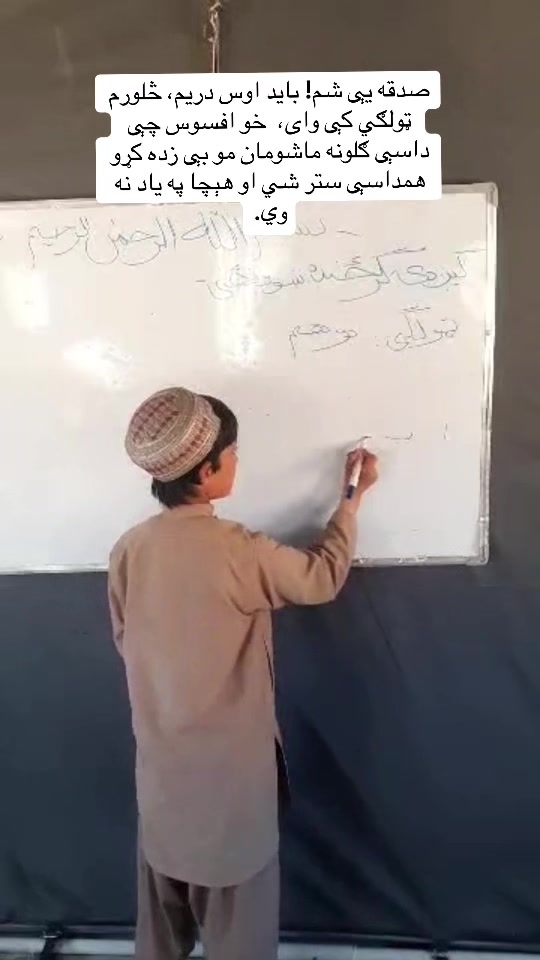 صدقه يې شم! بايد اوس دريم، څلورم
ټولګي کې وای، خو افسوس چې
داسې ګلونه ماشومان مو بې زده کړو
همداسې ستر شي او هېچا په ياد نه
وي.
بسم الله الرحمن الرحیم
ګرځنده ښوونځی
ټولګی: دوهم
ا ب